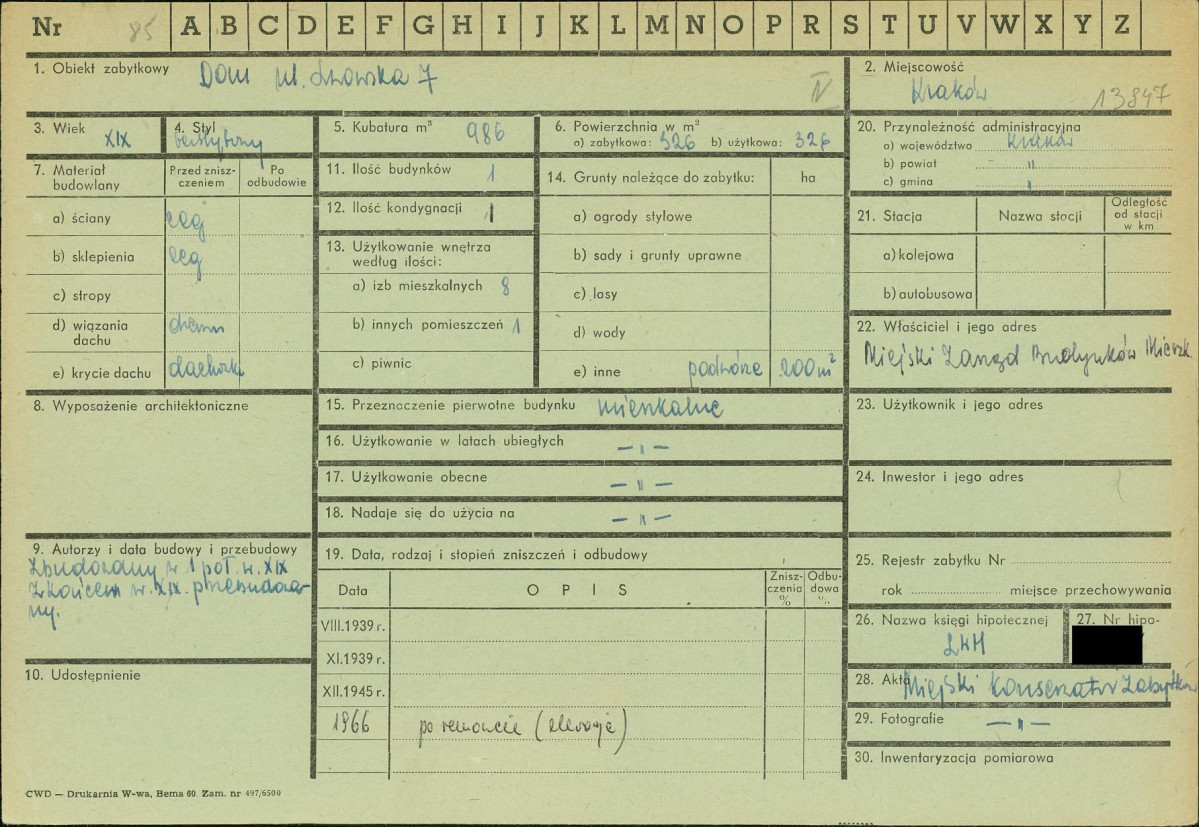 Nr 85 A B C D E F G H I J K L M N O P R S T U V W X Y Z
1. Obiekt zabytkowy Dom ul. Lwowska 7
IV
2. Miejscowość
Kraków 13847
3. Wiek
XIX
4. Styl
bezstylowy
5. Kubatura m³ 986
6. Powierzchnia w m²
a) zabytkowa: 326 b) użytkowa: 326
20. Przynależność administracyjna
a) województwo Kraków
b) powiat "
c) gmina "
7. Materiał budowlany
Przed zniszczeniem
Po odbudowie
a) ściany ceg
b) sklepienia ceg
c) stropy
d) wiązania dachu drewn
e) krycie dachu dachówk
11. Ilość budynków 1
12. Ilość kondygnacji 1
13. Użytkowanie wnętrza
według ilości:
a) izb mieszkalnych 8
b) innych pomieszczeń 1
c) piwnic
14. Grunty należące do zabytku: ha
a) ogrody stylowe
b) sady i grunty uprawne
c) lasy
d) wody
e) inne podwórze 200m²
21. Stacja
Nazwa stocji
Odległość od stacji w km
a) kolejowa
b) autobusowa
22. Właściciel i jego adres
Miejski Zarząd Budynków Mieszk
8. Wyposażenie architektoniczne
15. Przeznaczenie pierwotne budynku mieszkalne
16. Użytkowanie w latach ubiegłych — " —
17. Użytkowanie obecne — " —
18. Nadaje się do użycia na — " —
23. Użytkownik i jego adres
24. Inwestor i jego adres
9. Autorzy i data budowy i przebudowy
Zbudowany w 1 poł. w. XIX
Z końcem w. XIX. przebudowa-
ny.
10. Udostępnienie
19. Data, rodzaj i stopień zniszczeń i odbudowy
Data
O P I S
Zniszczenia %
Odbudowa %
VIII.1939 r.
XI.1939 r.
XII.1945 r.
1966 po remoncie (elewacje)
25. Rejestr zabytku Nr
rok miejsce przechowywania
26. Nazwa księgi hipotecznej
LKH
27. Nr hipo-
28. Akta Miejski Konserwator Zabytków
29. Fotografie — " —
30. Inwentaryzacja pomiarowa
CWD — Drukarnia W-wa, Bema 60. Zam. nr 497/6500